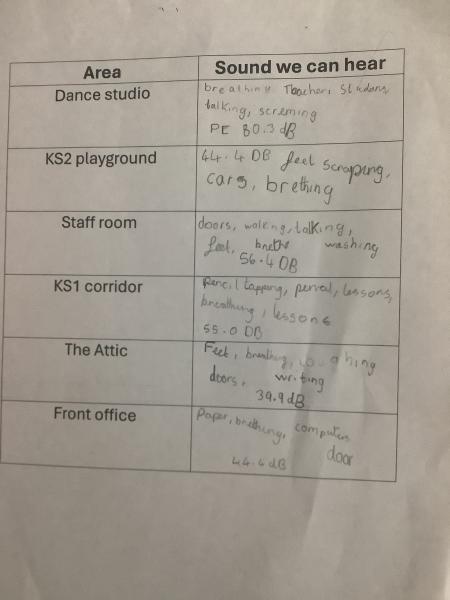 Area Sound we can hear
Dance studio breathing Teacher, Studans
talking, screming
PE 80.3 dB
KS2 playground 44.4 DB feet scraping,
cars, brething
Staff room doors, walking, talking,
feet, brethe washing
56.4 DB
KS1 corridor Pencil tapping, lessons,
breathing, lessons
55.0 DB
The Attic Feet, breathing, coughing
doors, writing
39.9dB
Front office Paper, brething, computer
door
44.6 dB